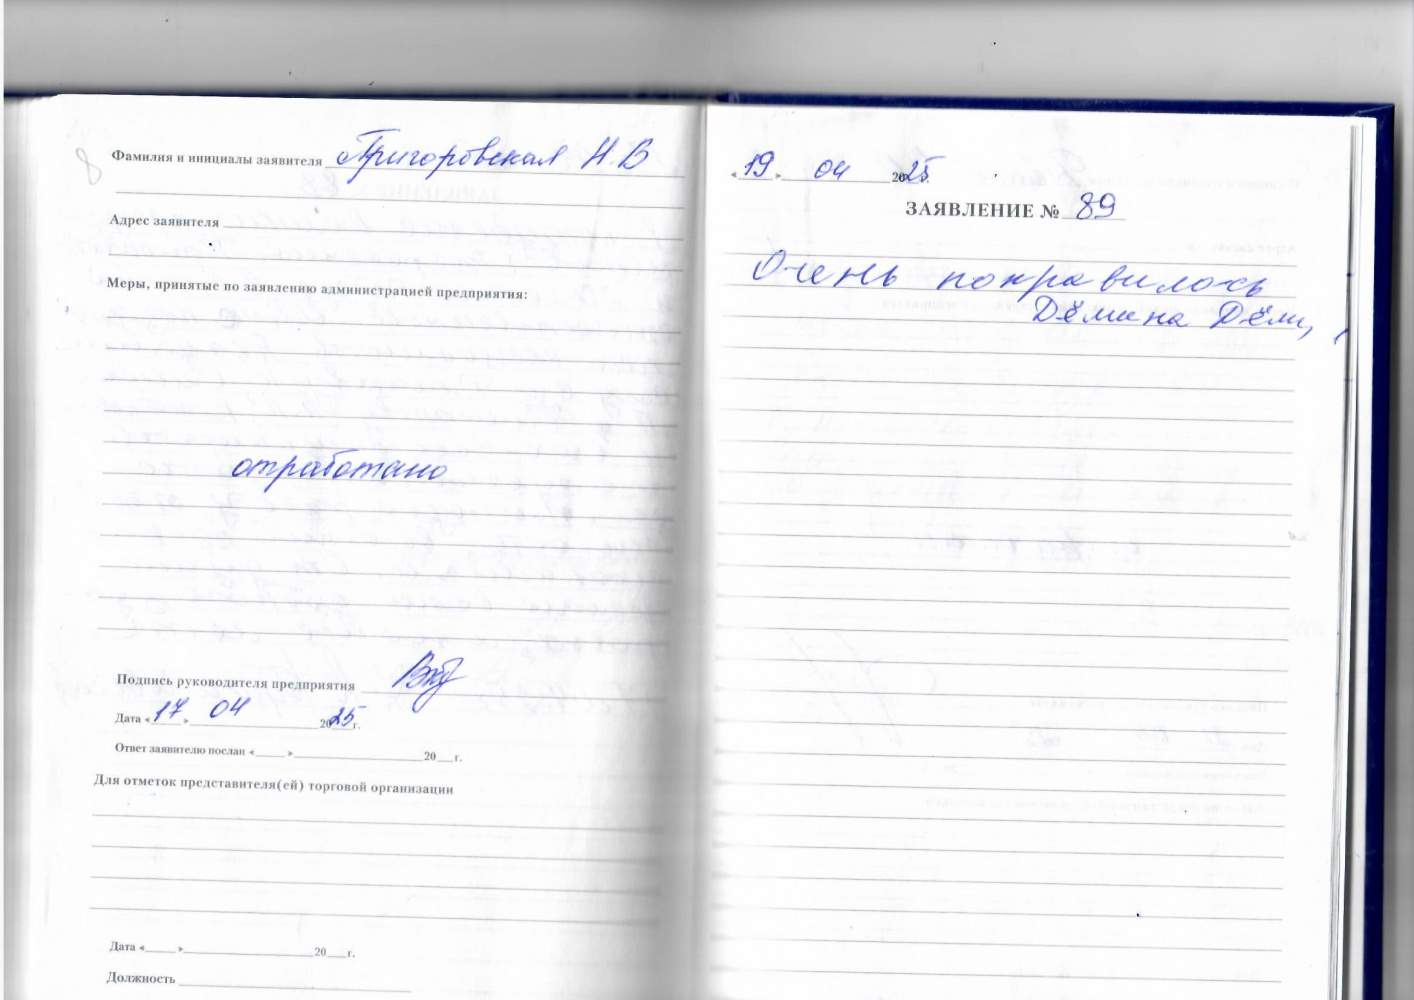 Фамилия и инициалы заявителя Григоровская Н.В
Адрес заявителя
Меры, принятые по заявлению администрацией предприятия:
отработано
Подпись руководителя предприятия
Дата «17» 04 2025 г.
Ответ заявителю послан «___» ___ 20__ г.
Для отметок представителя(ей) торговой организации
Дата «___» ___ 20__ г.
Должность
«19» 04 2025 г.
ЗАЯВЛЕНИЕ № 89
Очень понравилось
Дёмина Дёми,